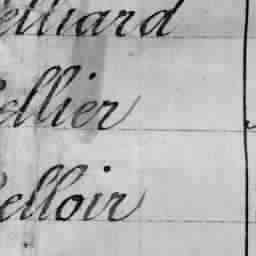 elliard
ellier
elloir